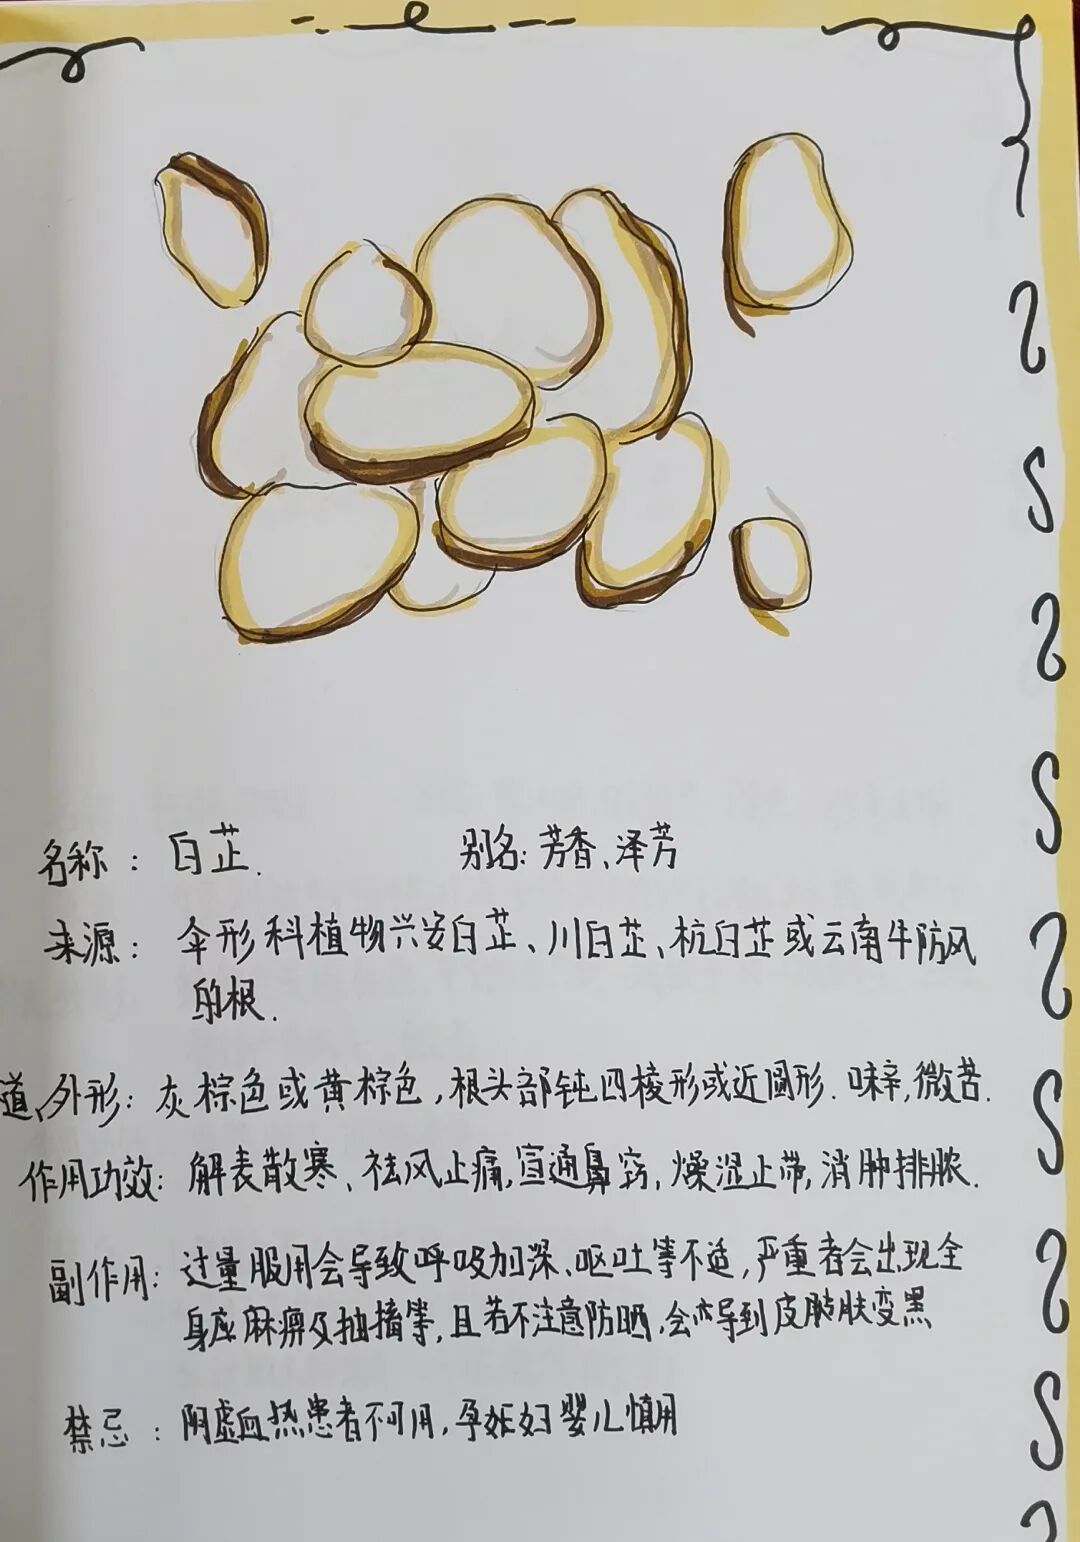 名称：白芷. 别名：芳香、泽芳
来源：伞形科植物兴安白芷、川白芷、杭白芷或云南牛防风
的根.
道、外形：灰棕色或黄棕色，根头部钝四棱形或近圆形. 味辛，微苦.
作用功效：解表散寒、祛风止痛，宣通鼻窍，燥湿止带，消肿排脓.
副作用：过量服用会导致呼吸加深、呕吐等不适，严重者会出现全
身麻痹及抽搐等，且若不注意防晒，会导到皮肤变黑
禁忌：阴虚血热患者不可用，孕妊妇婴儿慎用